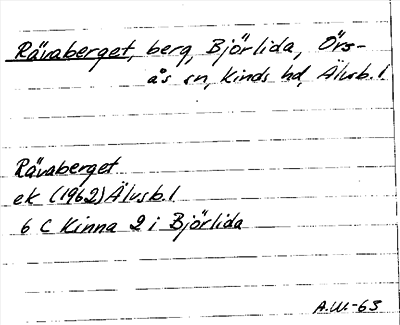 Rävaberget, berg, Björlida, Örs-
ås sn, Kinds hd, Älvsb. l.
Rävaberget
ek (1962) Älvsb. l
6 C Kinna 2 i Björlida
A.W.-63